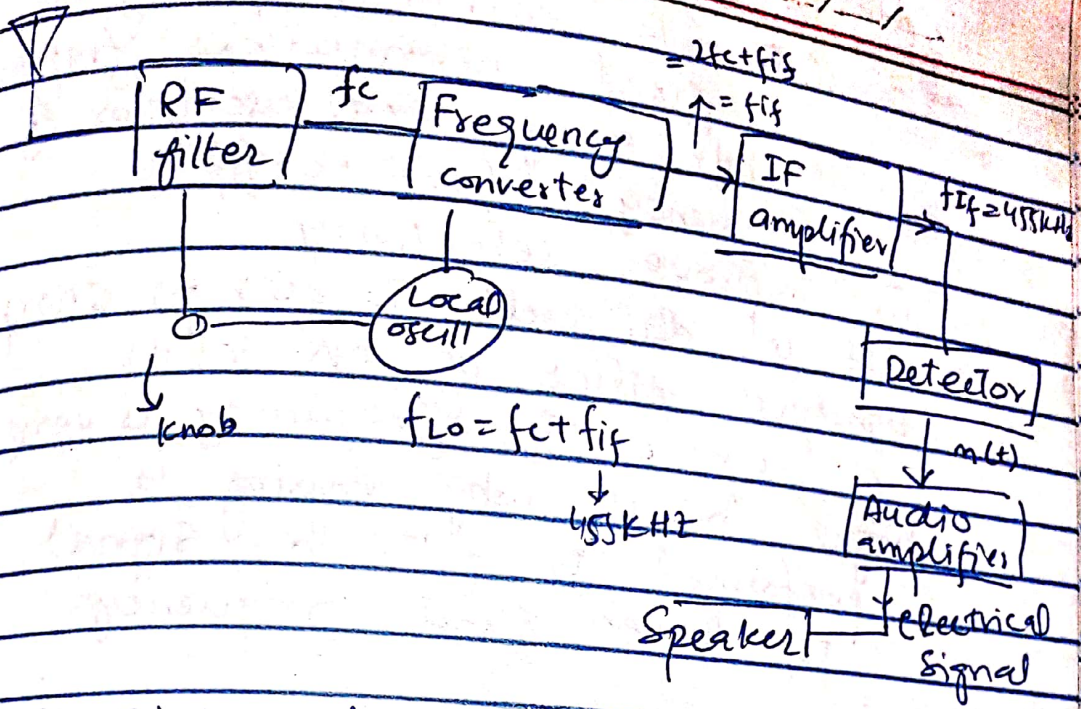 = 2fc+fif
= fif
RF
filter
fc
Frequency
converter
IF
amplifier
fIf = 455KHz
Local
oscill
knob
fLO = fc + fif
455KHZ
Detector
m(t)
Audio
amplifier
Speaker
electrical
signal